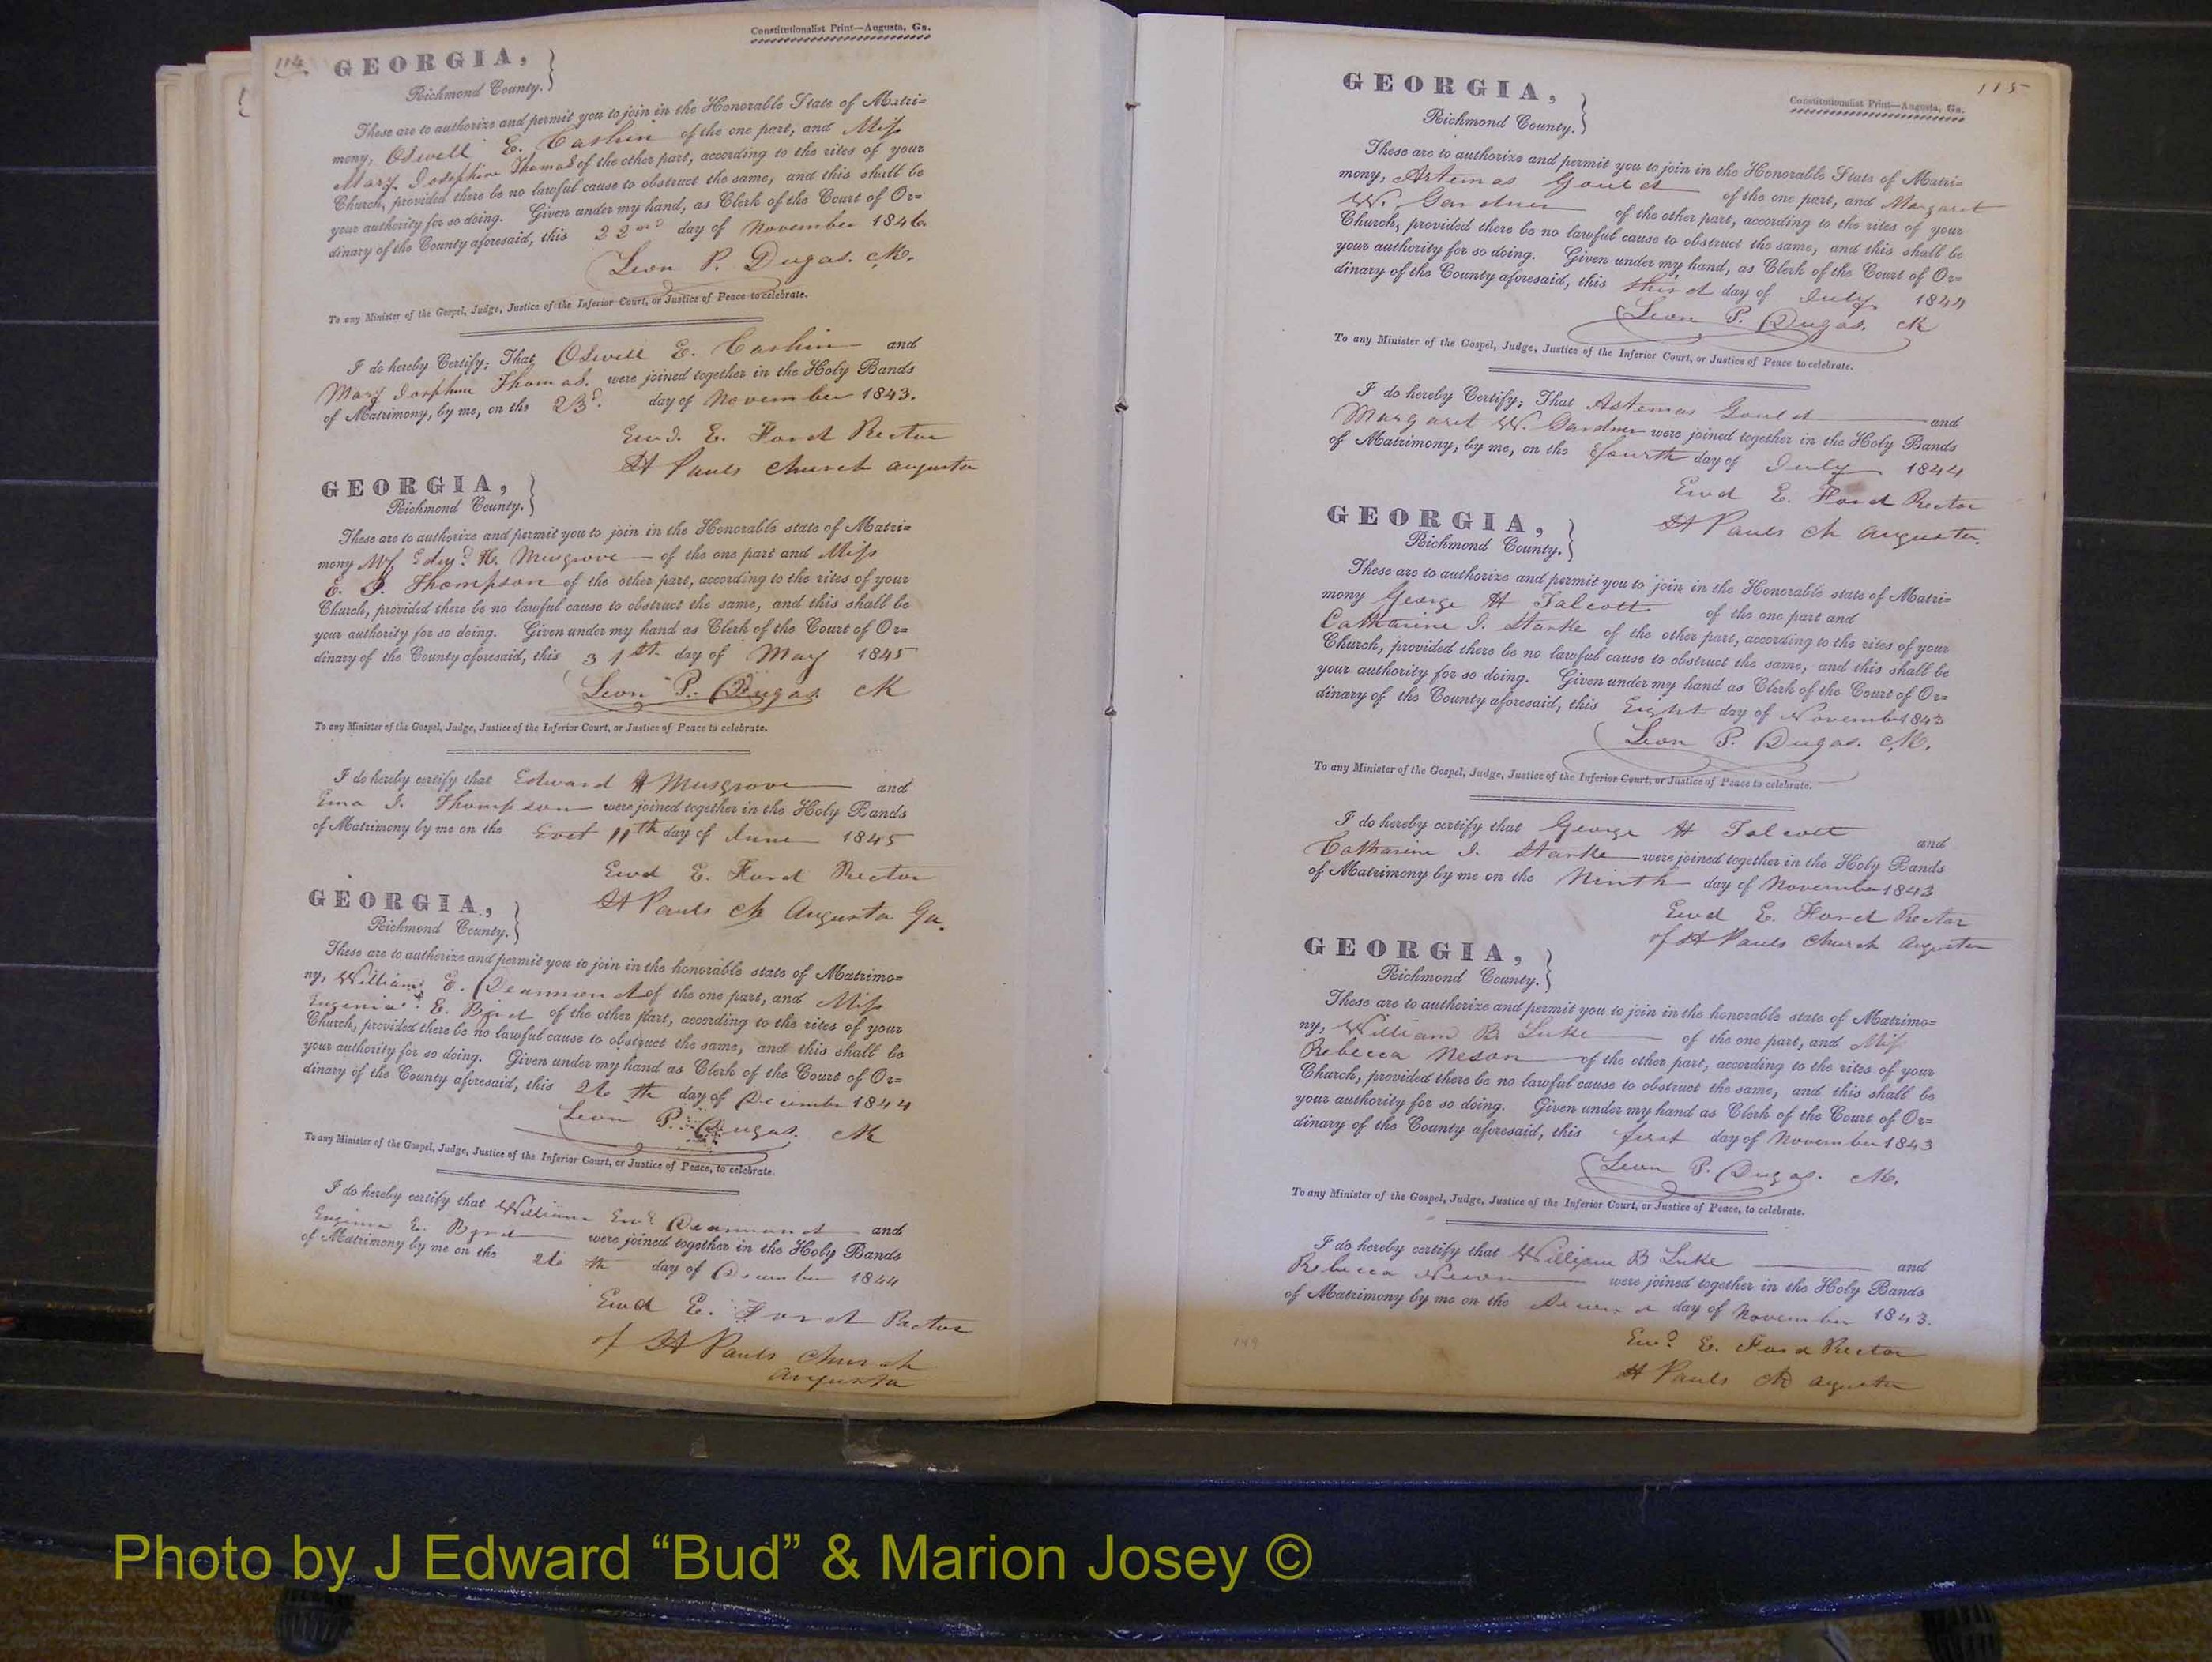 114
Constitutionalist Print—Augusta, Ga.
GEORGIA,
Richmond County.
These are to authorize and permit you to join in the Honorable State of Matri=
mony, Oswell E. Cashin of the one part, and Miss
Mary Josephine Thomas of the other part, according to the rites of your
Church, provided there be no lawful cause to obstruct the same, and this shall be
your authority for so doing. Given under my hand, as Clerk of the Court of Or=
dinary of the County aforesaid, this 22nd day of November 1843.
Leon P. Dugas. Clk.
To any Minister of the Gospel, Judge, Justice of the Inferior Court, or Justice of Peace to celebrate.
I do hereby Certify; That Oswell E. Cashin and
Mary Josephine Thomas. were joined together in the Holy Bands
of Matrimony, by me, on the 23d. day of November 1843.
Ewd. E. Ford Rector
St Pauls Church Augusta
GEORGIA,
Richmond County.
These are to authorize and permit you to join in the Honorable state of Matri=
mony Mr. H. Musgrove of the one part and Miss
E. J. Thompson of the other part, according to the rites of your
Church, provided there be no lawful cause to obstruct the same, and this shall be
your authority for so doing. Given under my hand as Clerk of the Court of Or=
dinary of the County aforesaid, this 31th day of May 1845
Leon P. Dugas. Clk
To any Minister of the Gospel, Judge, Justice of the Inferior Court, or Justice of Peace to celebrate.
I do hereby certify that Edward H Musgrove and
Ema J. Thompson were joined together in the Holy Bands
of Matrimony by me on the 11th day of June 1845
Ewd E. Ford Rector
St Pauls Ch Augusta Ga.
GEORGIA,
Richmond County.
These are to authorize and permit you to join in the honorable state of Matrimo=
ny, William E. Dearmond of the one part, and Miss
Eugenia E. Bird of the other part, according to the rites of your
Church, provided there be no lawful cause to obstruct the same, and this shall be
your authority for so doing. Given under my hand as Clerk of the Court of Or=
dinary of the County aforesaid, this 26th day of December 1844
Leon P. Dugas. Clk
To any Minister of the Gospel, Judge, Justice of the Inferior Court, or Justice of Peace, to celebrate.
I do hereby certify that William Ewd. Dearmond and
Eugenia E. Byrd were joined together in the Holy Bands
of Matrimony by me on the 26th day of December 1844
Ewd E. Ford Rector
of St Pauls Church
Augusta
115
Constitutionalist Print—Augusta, Ga.
GEORGIA,
Richmond County.
These are to authorize and permit you to join in the Honorable State of Matri=
mony, Artemas Gould of the one part, and Margaret
W. Gardner of the other part, according to the rites of your
Church, provided there be no lawful cause to obstruct the same, and this shall be
your authority for so doing. Given under my hand, as Clerk of the Court of Or=
dinary of the County aforesaid, this third day of July 1844
Leon P. Dugas. Clk
To any Minister of the Gospel, Judge, Justice of the Inferior Court, or Justice of Peace to celebrate.
I do hereby Certify; That Artemas Gould and
Margaret W. Gardner were joined together in the Holy Bands
of Matrimony, by me, on the fourth day of July 1844
Ewd E. Ford Rector
St Pauls Ch Augusta.
GEORGIA,
Richmond County.
These are to authorize and permit you to join in the Honorable state of Matri=
mony George H Talcott of the one part and
Catharine J. Starke of the other part, according to the rites of your
Church, provided there be no lawful cause to obstruct the same, and this shall be
your authority for so doing. Given under my hand as Clerk of the Court of Or=
dinary of the County aforesaid, this Eight day of November 1843
Leon P. Dugas. Clk.
To any Minister of the Gospel, Judge, Justice of the Inferior Court, or Justice of Peace to celebrate.
I do hereby certify that George H Talcott and
Catharine J. Starke were joined together in the Holy Bands
of Matrimony by me on the Ninth day of November 1843
Ewd E. Ford Rector
of St Pauls Church Augusta
GEORGIA,
Richmond County.
These are to authorize and permit you to join in the honorable state of Matrimo=
ny, William B Luke of the one part, and Miss
Rebecca Neson of the other part, according to the rites of your
Church, provided there be no lawful cause to obstruct the same, and this shall be
your authority for so doing. Given under my hand as Clerk of the Court of Or=
dinary of the County aforesaid, this first day of November 1843
Leon P. Dugas. Clk.
To any Minister of the Gospel, Judge, Justice of the Inferior Court, or Justice of Peace, to celebrate.
I do hereby certify that William B Luke and
Rebecca were joined together in the Holy Bands
of Matrimony by me on the Second day of November 1843.
Ewd. E. Ford Rector
St Pauls Ch Augusta
149
Photo by J Edward “Bud” & Marion Josey ©